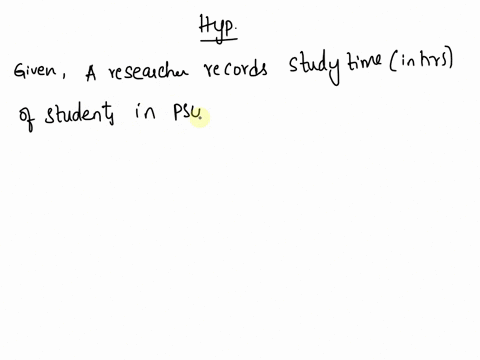 Hyp.
Given, A researcher records study time (in hrs)
of students in PSU